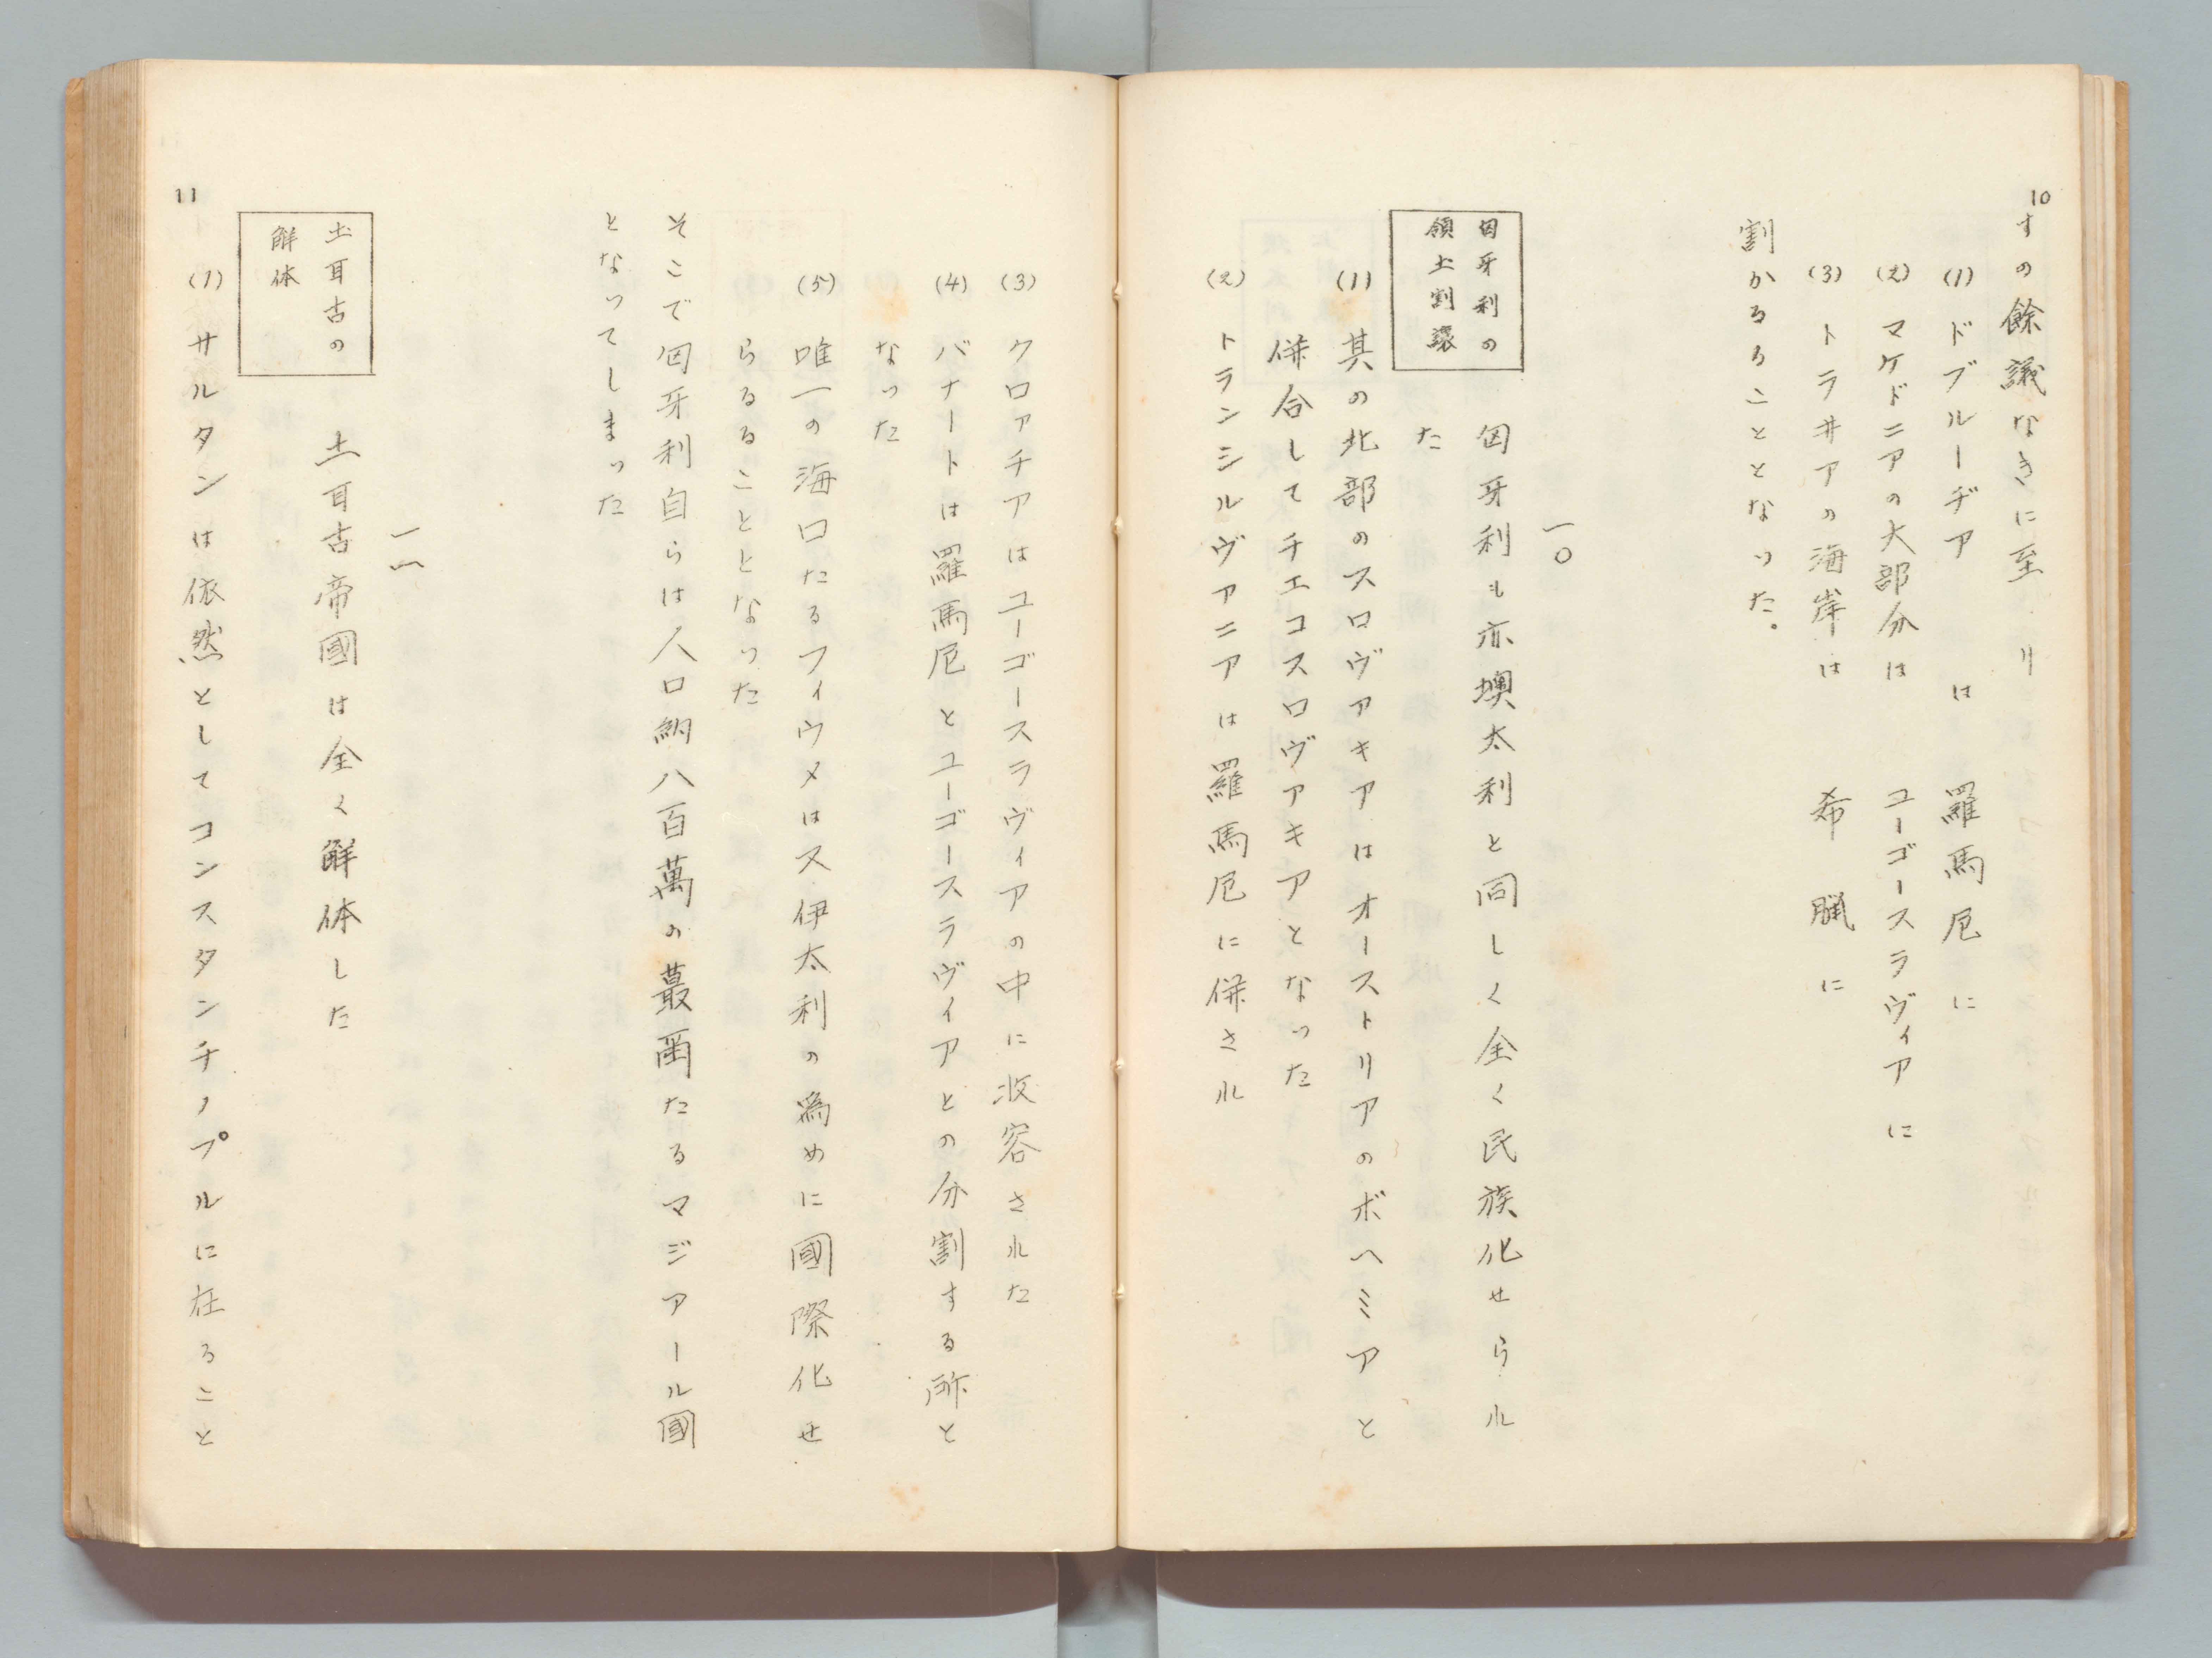 10
すの餘議なきに至り
(1) ドブルーヂア は 羅馬厄に
(2) マケドニアの大部分は ユーゴースラヴィアに
(3) トラヰアの海岸は 希臘に
割かるることとなつた。
一〇
匈牙利の
領土割譲
匈牙利も亦墺太利と同しく全く民族化せられ
た
(1) 其の北部のスロヴァキアはオーストリアのボヘミアと
併合してチエコスロヴアキアとなつた
(2) トランシルヴァニアは羅馬厄に併され
(3) クロァチアはユーゴースラヴィアの中に收容された
(4) バナートは羅馬厄とユーゴースラヴィアとの分割する所と
なつた
(5) 唯一の海口たるフィウメは又伊太利の為めに國際化せ
らるることとなつた
そこで匈牙利自らは人口納八百萬の蕞爾たるマジアール國
となつてしまつた
一一
土耳古の
解体
土耳古帝國は全く解体した
(1) サルタンは依然としてコンスタンチノプルに在ること
11